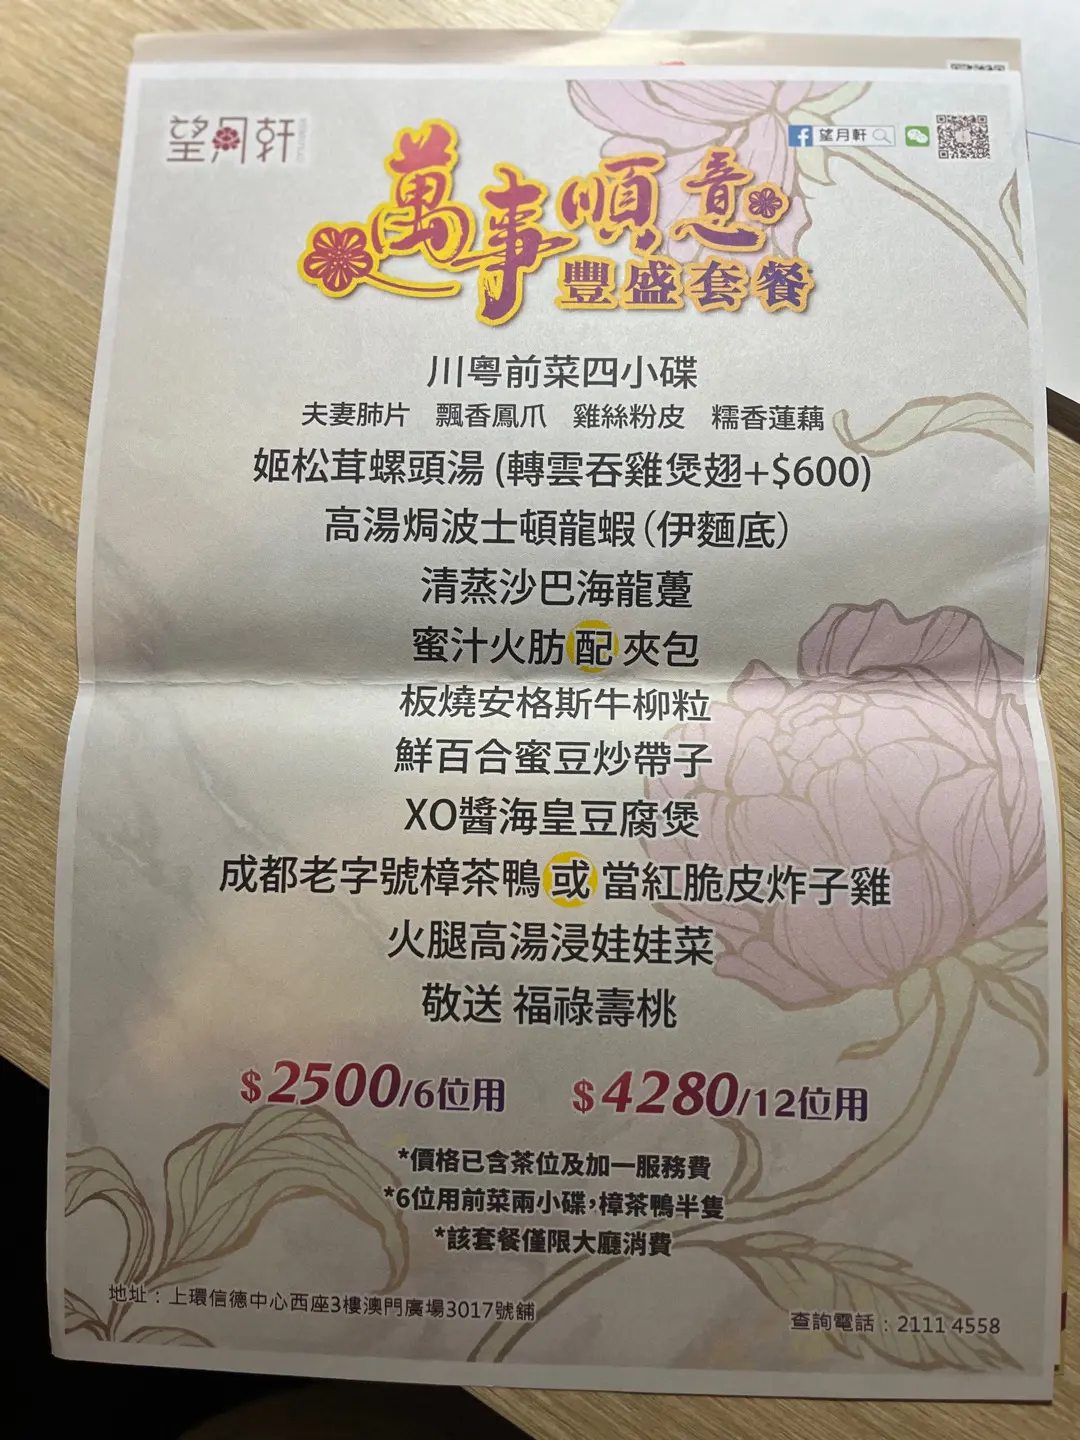 望月軒
望月軒
萬事順意
豐盛套餐
川粵前菜四小碟
夫妻肺片 飄香鳳爪 雞絲粉皮 糯香蓮藕
姬松茸螺頭湯 (轉雲吞雞煲翅+$600)
高湯焗波士頓龍蝦(伊麵底)
清蒸沙巴海龍躉
蜜汁火肪 配 夾包
板燒安格斯牛柳粒
鮮百合蜜豆炒帶子
XO醬海皇豆腐煲
成都老字號樟茶鴨 或 當紅脆皮炸子雞
火腿高湯浸娃娃菜
敬送 福祿壽桃
$2500/6位用 $4280/12位用
*價格已含茶位及加一服務費
*6位用前菜兩小碟,樟茶鴨半隻
*該套餐僅限大廳消費
地址:上環信德中心西座3樓澳門廣場3017號舖
查詢電話:2111 4558